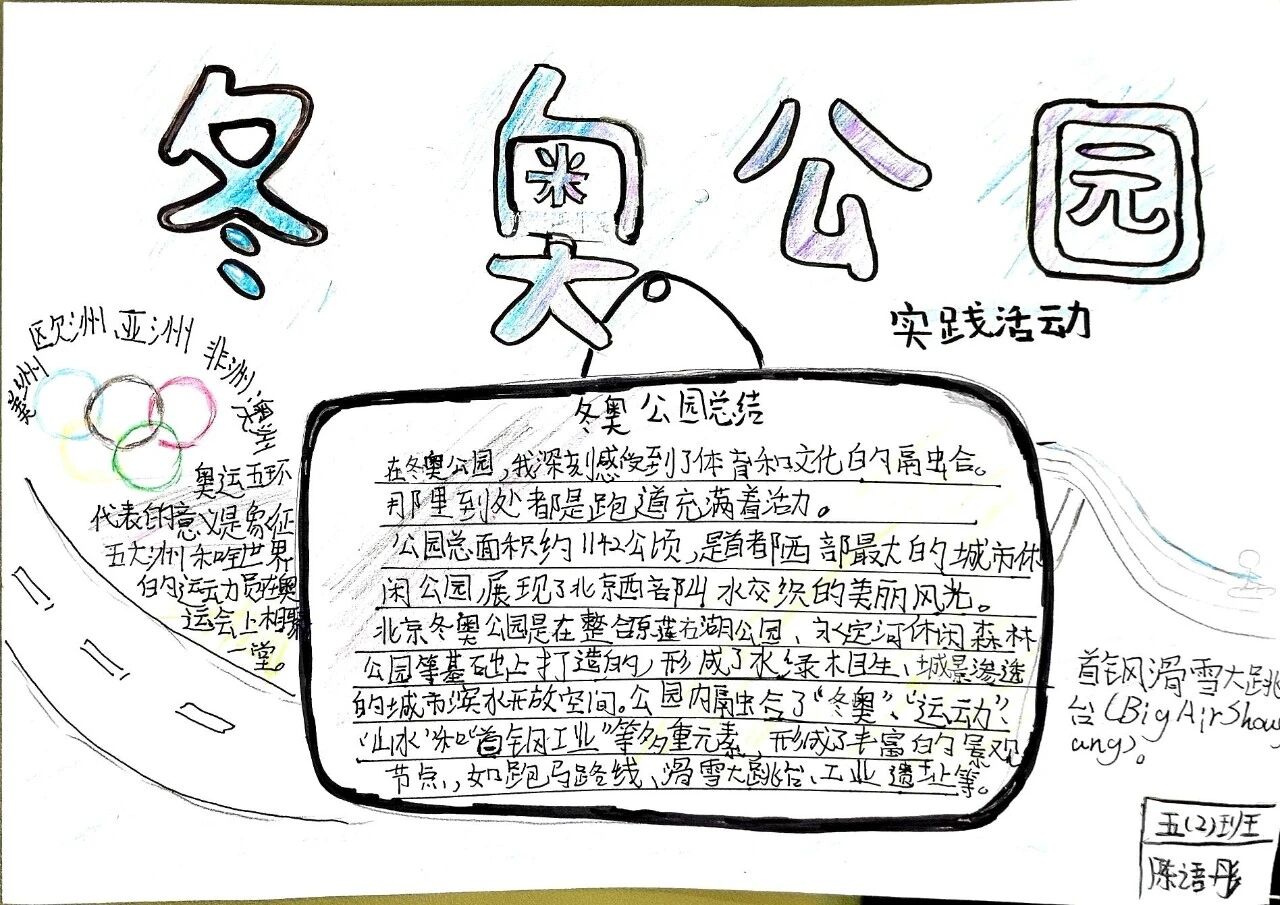 冬奥公园
实践活动
美洲 欧洲、亚洲 非洲 澳洲
奥运五环
代表的意义是象征
五大洲和全世界
的运动员在奥
运会上相聚
一堂。
冬奥公园总结
在冬奥公园,我深刻感受到了体育和文化的融合。
那里到处都是跑道充满着活力。
公园总面积约1142公顷,是首都西部最大的城市休
闲公园,展现了北京西部山水交织的美丽风光。
北京冬奥公园是在整合原莲石湖公园、永定河休闲森林
公园等基础上打造的,形成了水绿相生、城景渗透
的城市滨水开放空间。公园内融合了“冬奥”、“运动”、
“山水”和“首钢工业”等多重元素,形成了丰富的景观
节点,如跑马路线、滑雪大跳台、工业遗址等。
首钢滑雪大跳
台(Big Air Shou
gang)。
五(2)班
陈语彤